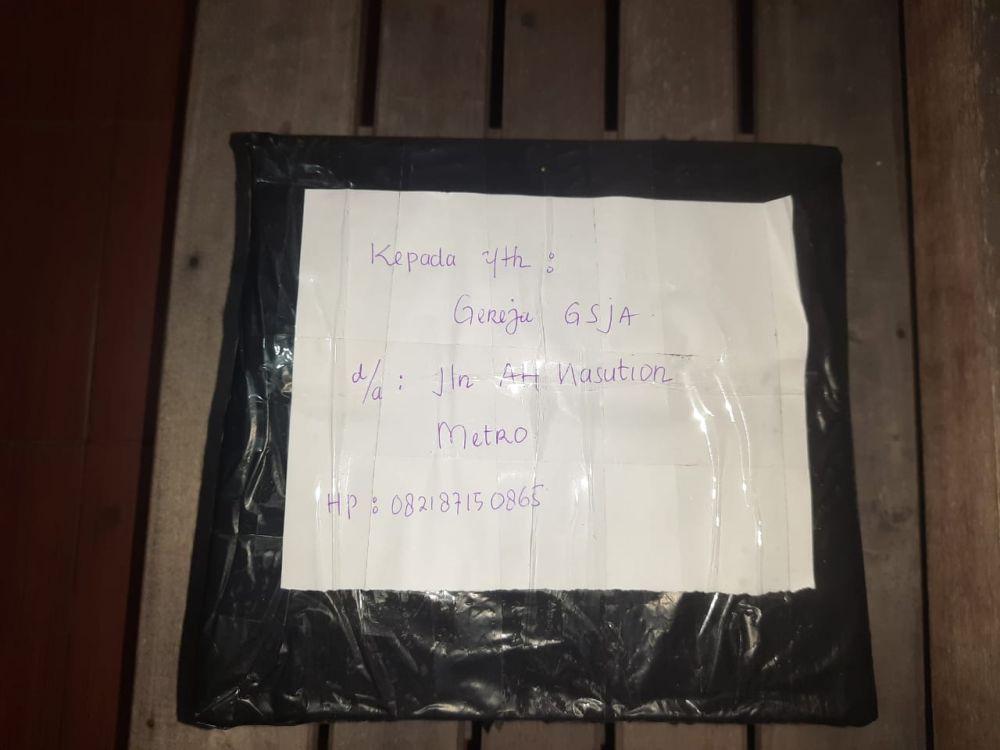 Kepada Yth :
Gereja GSjA
d/a : Jln AH Nasution
Metro
HP : 082187150865